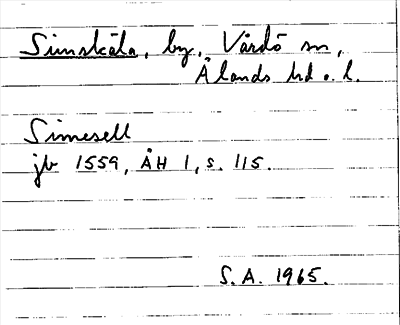 Simskäla, by, Vårdö sn,
Ålands hd o. l.
Simesell
jb 1559, ÅH 1, s. 115.
S. A. 1965.